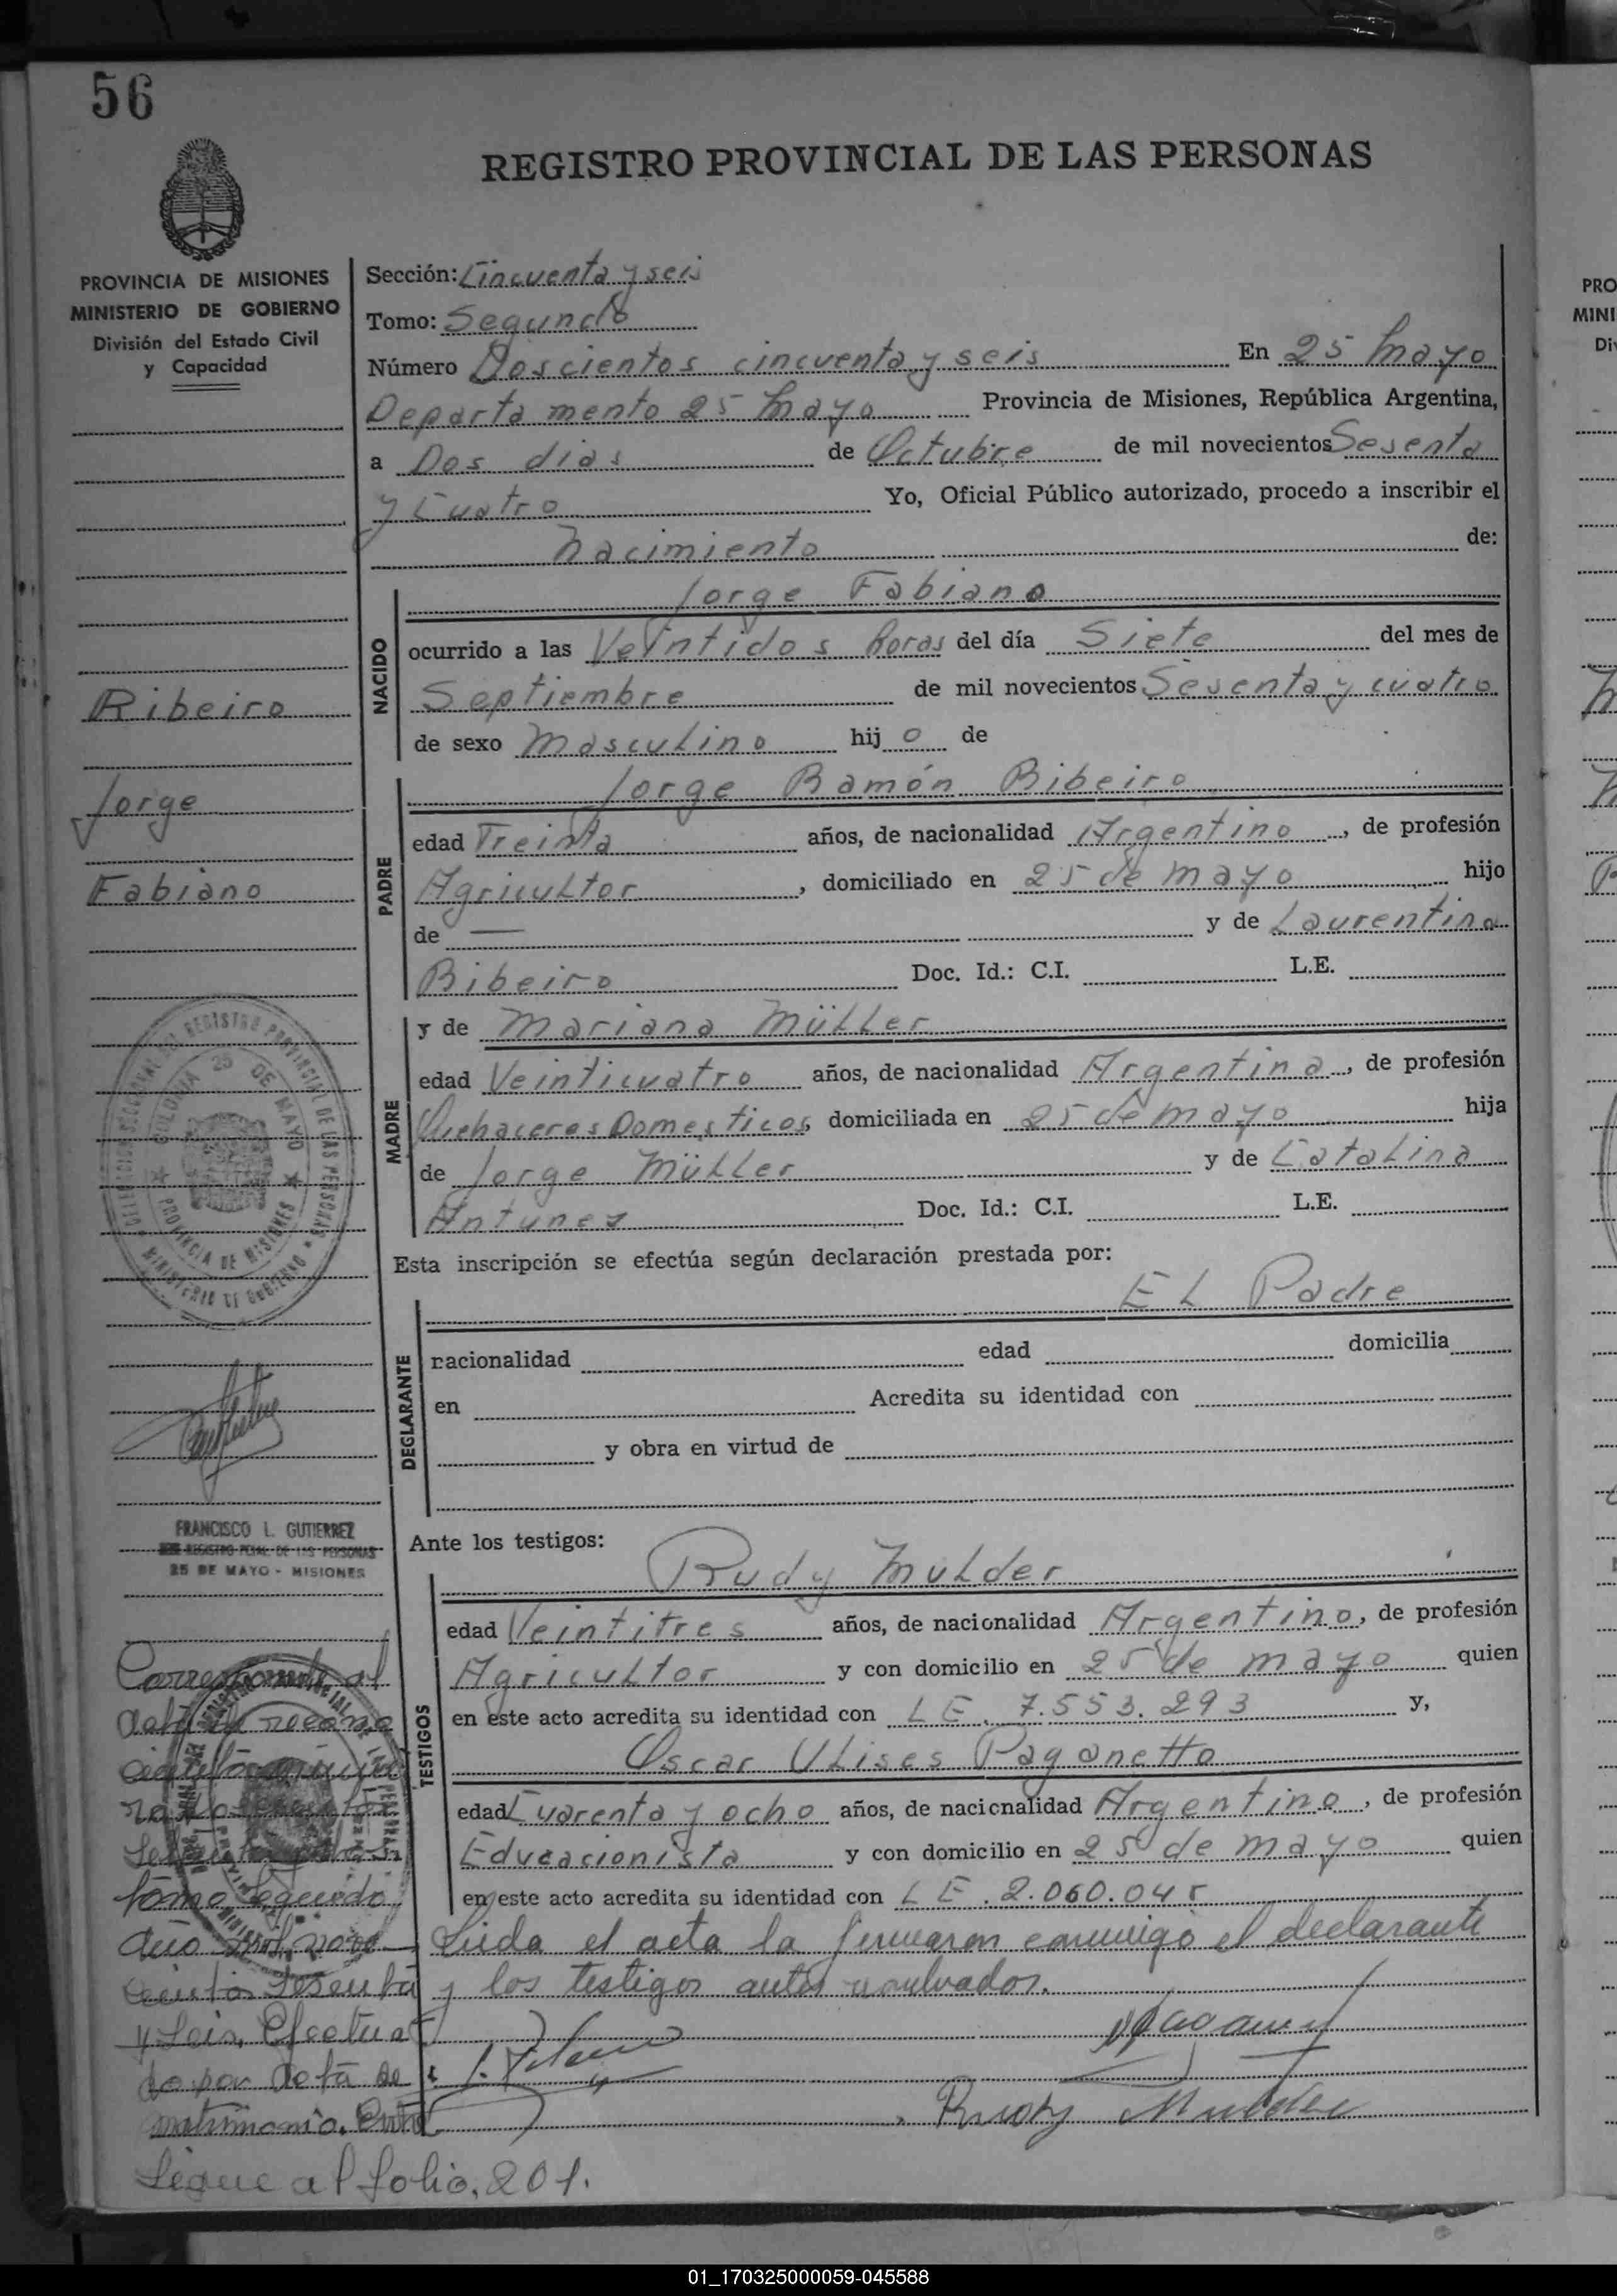 56
REGISTRO PROVINCIAL DE LAS PERSONAS
PROVINCIA DE MISIONES
MINISTERIO DE GOBIERNO
División del Estado Civil
y Capacidad
Ribeiro
Jorge
Fabiano
FRANCISCO L. GUTIERREZ
REGISTRO PCIAL. DE LAS PERSONAS
25 DE MAYO - MISIONES
Corresponde al
tomo Segundo
año mil nove
cientos sesenta
y Seis. Efectua
do por Acta de
matrimonio.
Sigue al folio. 201.
Sección: Cincuenta y seis
Tomo: Segundo
Número Doscientos cincuenta y seis En 25 Mayo
Departamento 25 Mayo Provincia de Misiones, República Argentina,
a Dos dias de Octubre de mil novecientos Sesenta
y Cuatro Yo, Oficial Público autorizado, procedo a inscribir el
Nacimiento de:
NACIDO
Jorge Fabiano
ocurrido a las Veintidos horas del día Siete del mes de
Septiembre de mil novecientos Sesenta y cuatro
de sexo Masculino hij o de
PADRE
Jorge Ramón Ribeiro
edad Treinta años, de nacionalidad Argentino, de profesión
Agricultor, domiciliado en 25 de Mayo hijo
de — y de Laurentina
Ribeiro Doc. Id.: C.I. L.E.
MADRE
y de Mariana Müller
edad Veinticuatro años, de nacionalidad Argentina, de profesión
Quehaceres Domesticos domiciliada en 25 de Mayo hija
de Jorge Müller y de Catalina
Antunez Doc. Id.: C.I. L.E.
Esta inscripción se efectúa según declaración prestada por:
DECLARANTE
El Padre
nacionalidad edad domicilia
en Acredita su identidad con
y obra en virtud de
Ante los testigos:
TESTIGOS
Rudy Mulder
edad Veintitres años, de nacionalidad Argentino, de profesión
Agricultor y con domicilio en 25 de Mayo quien
en este acto acredita su identidad con L E. 7.553.293 y,
Oscar Ulises Paganetto
edad Cuarenta y ocho años, de nacionalidad Argentino, de profesión
Educacionista y con domicilio en 25 de Mayo quien
en este acto acredita su identidad con L E. 2.060.045
Leida el acta la firmaron conmigo el declarante
y los testigos antes nombrados.
Rudy Mulder
01_170325000059-045588